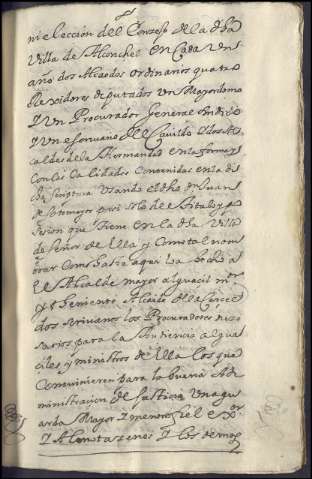 ni eleccion del Consejo de la dha
Villa de Alconchel en Cada Un
año dos Alcaldes ordinarios quatro
Rexidores diputados Un Mayordomo
Y Un Procurador General
Y Un escrivano del Cavildo dos Al
caldes de la Hermandad en la forma y
Con las Calidades Contenidas en la di
cha escriptura Usando el dho Dn Juan
de Sotomayor por solo el titulo y po
sesion que tiene en la dha Villa
de Señor de ella y Como tal nom
brar Como hasta aqui ha hecho a
el Alcalde mayor alguacil mor
y theniente Alcaide de la Carcel
dos escrivanos los Procuradores nece
sarios para la Audiencia algua
ciles y ministros de ella los que
Combinieren para la buena Ad
ministracion de Justicia Un agu
Mayor Y menores fiel exor
Y Almotazenes Y los demas